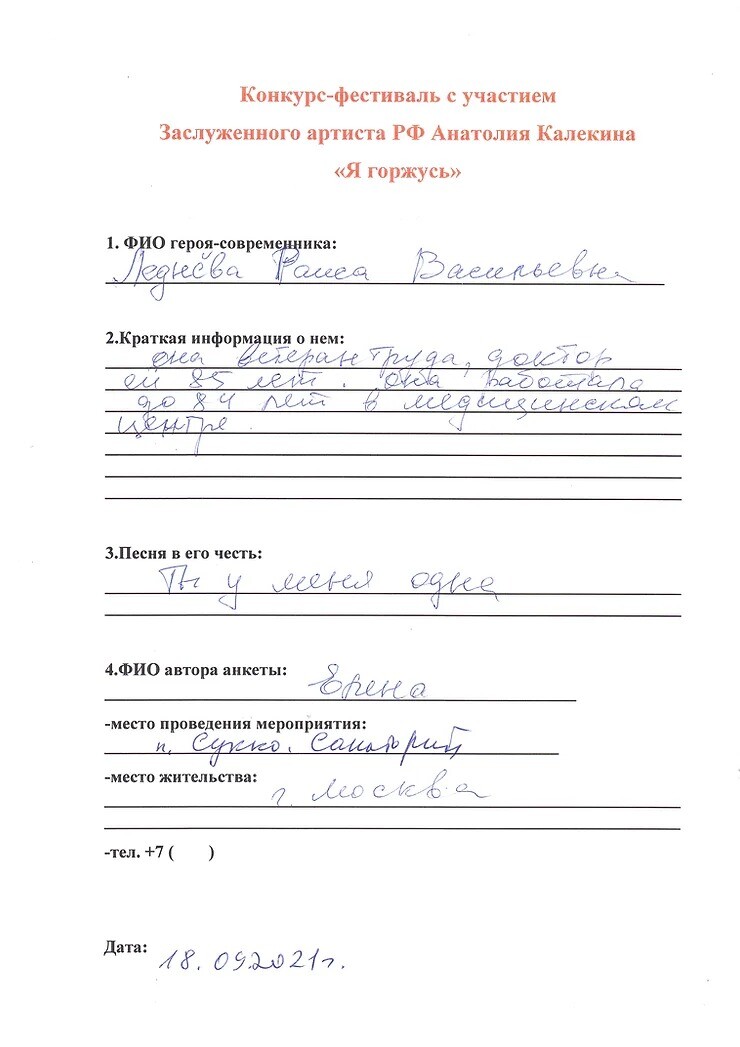 Конкурс-фестиваль с участием
Заслуженного артиста РФ Анатолия Калекина
«Я горжусь»
1. ФИО героя-современника:
Леднёва Раиса Васильевна
2.Краткая информация о нем:
она ветеран труда, доктор
ей 85 лет. она работала
до 84 лет в медицинском
центре.
3.Песня в его честь:
Ты у меня одна
4.ФИО автора анкеты:
-место проведения мероприятия:
п. Сукко. Санаторий
-место жительства:
г. Москва
-тел. +7 ( )
Дата:
18.09.2021г.